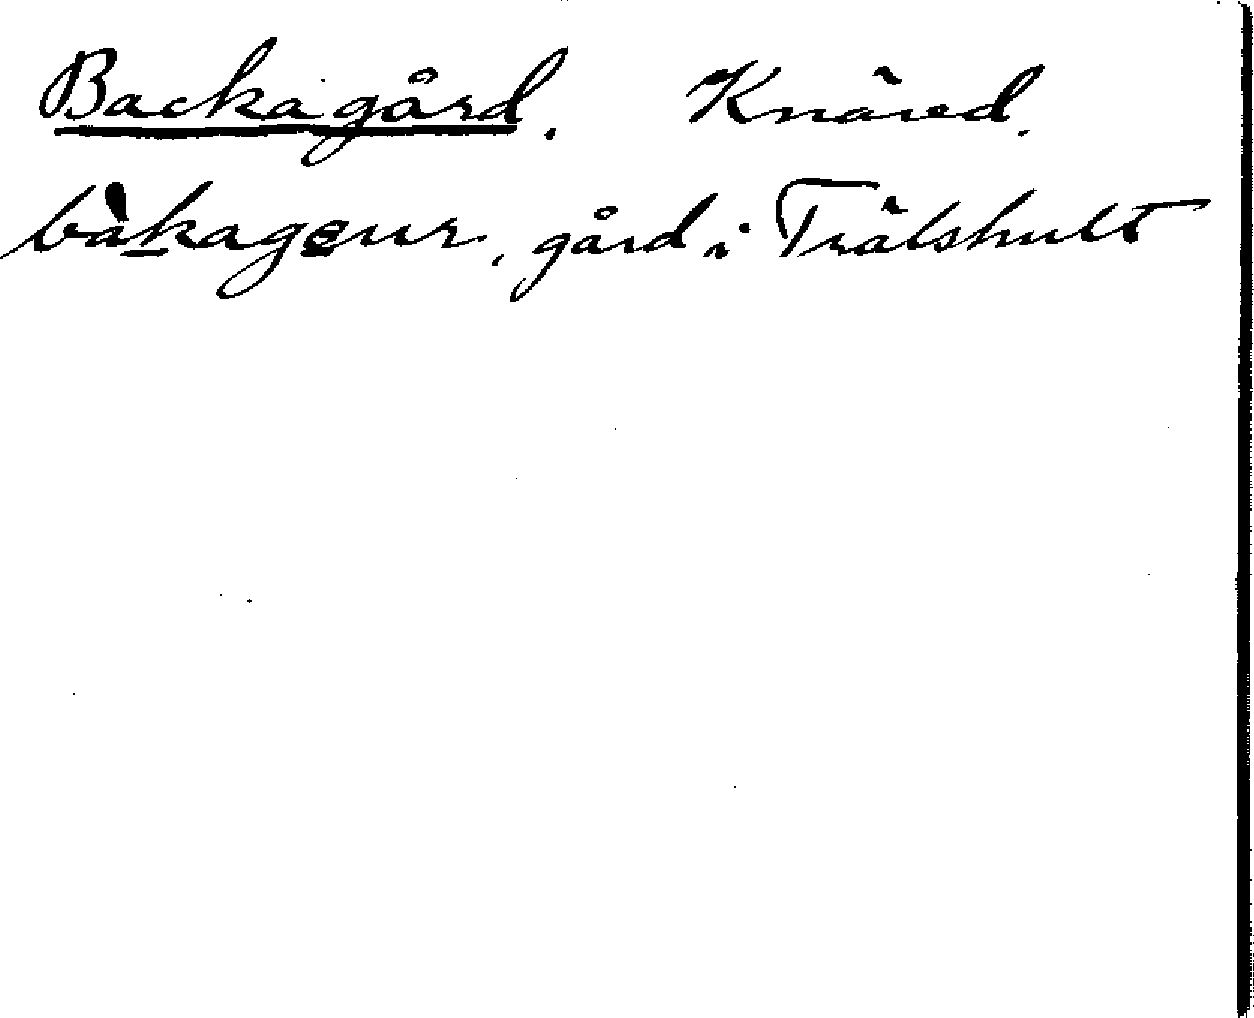 Backagård. Knäred.
bàkagɛur, gård i Trälshult